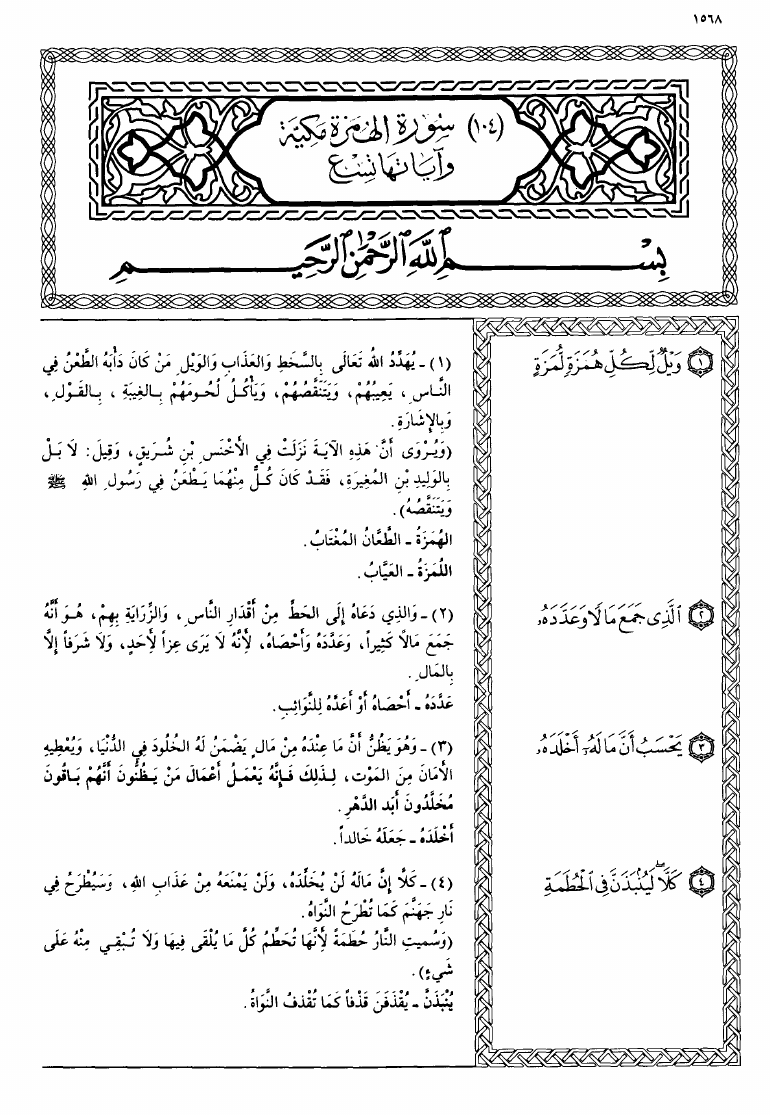 ١٥٦٨
(١٠٤) سُورَة الهُمَزَة مَكِيَّة
وَآيَاتها تِسْع
بِسْمِ ٱللَّهِ ٱلرَّحْمَٰنِ ٱلرَّحِيمِ
١ وَيْلٌ لِّكُلِّ هُمَزَةٍ لُّمَزَةٍ
(١) - يُهَدِّدُ اللهُ تَعَالَى بِالسَّخَطِ وَالعَذَابِ وَالوَيْلِ مَنْ كَانَ دَأْبُهُ الطَّعْنُ فِي
النَّاسِ، يَعِيبُهُمْ، وَيَتَنَقَّصُهُمْ، وَيَأْكُلُ لُحُومَهُمْ بِالغِيبَةِ، بِالقَوْلِ،
وَبِالإِشَارَةِ.
(وَيُرْوَى أَنَّ هَذِهِ الآيَةَ نَزَلَتْ فِي الأَخْنَسِ بْنِ شُرَيقٍ، وَقِيلَ: لَا بَلْ
بِالوَلِيدِ بْنِ المُغِيرَةِ، فَقَدْ كَانَ كُلٌّ مِنْهُمَا يَطْعَنُ فِي رَسُولِ اللهِ ﷺ
وَيَتَنَقَّصُهُ).
الهُمَزَةُ - الطَّعَّانُ المُغْتَابُ.
اللُّمَزَةُ - العَيَّابُ.
٢ ٱلَّذِى جَمَعَ مَالًا وَعَدَّدَهُۥ
(٢) - وَالذِي دَعَاهُ إِلَى الحَطِّ مِنْ أَقْدَارِ النَّاسِ، وَالزِّرَايَةِ بِهِمْ، هُوَ أَنَّهُ
جَمَعَ مَالاً كَثِيراً، وَعَدَّدَهُ وَأَحْصَاهُ، لأَنَّهُ لَا يَرَى عِزاً لأَحَدٍ، وَلَا شَرَفاً إِلَّا
بِالمَالِ.
عَدَّدَهُ - أَحْصَاهُ أَوْ أَعَدَّهُ لِلنَّوَائِبِ.
٣ يَحْسَبُ أَنَّ مَالَهُۥٓ أَخْلَدَهُۥ
(٣) - وَهُوَ يَظُنُّ أَنَّ مَا عِنْدَهُ مِنْ مَالٍ يَضْمَنُ لَهُ الخُلُودَ فِي الدُّنْيَا، وَيُعْطِيهِ
الأَمَانَ مِنَ المَوْتِ، لِذَلِكَ فَإِنَّهُ يَعْمَلُ أَعْمَالَ مَنْ يَظُنُّونَ أَنَّهُمْ بَاقُونَ
مُخَلَّدُونَ أَبَدَ الدَّهْرِ.
أَخْلَدَهُ - جَعَلَهُ خَالداً.
٤ كَلَّا ۖ لَيُنۢبَذَنَّ فِى ٱلْحُطَمَةِ
(٤) - كَلَّا إِنَّ مَالَهُ لَنْ يُخَلِّدَهُ، وَلَنْ يَمْنَعَهُ مِنْ عَذَابِ اللهِ، وَسَيُطْرَحُ فِي
نَارِ جَهَنَّمَ كَمَا تُطْرَحُ النَّوَاةُ.
(وَسُمِيتِ النَّارُ حُطَمَةً لأَنَّهَا تُحَطِّمُ كُلَّ مَا يُلْقَى فِيهَا وَلَا تُبْقِي مِنْهُ عَلَى
شَيءٍ).
يُنْبَذَنَّ - يُقْذَفَنَ قَذْفاً كَمَا تُقْذَفُ النَّوَاةُ.